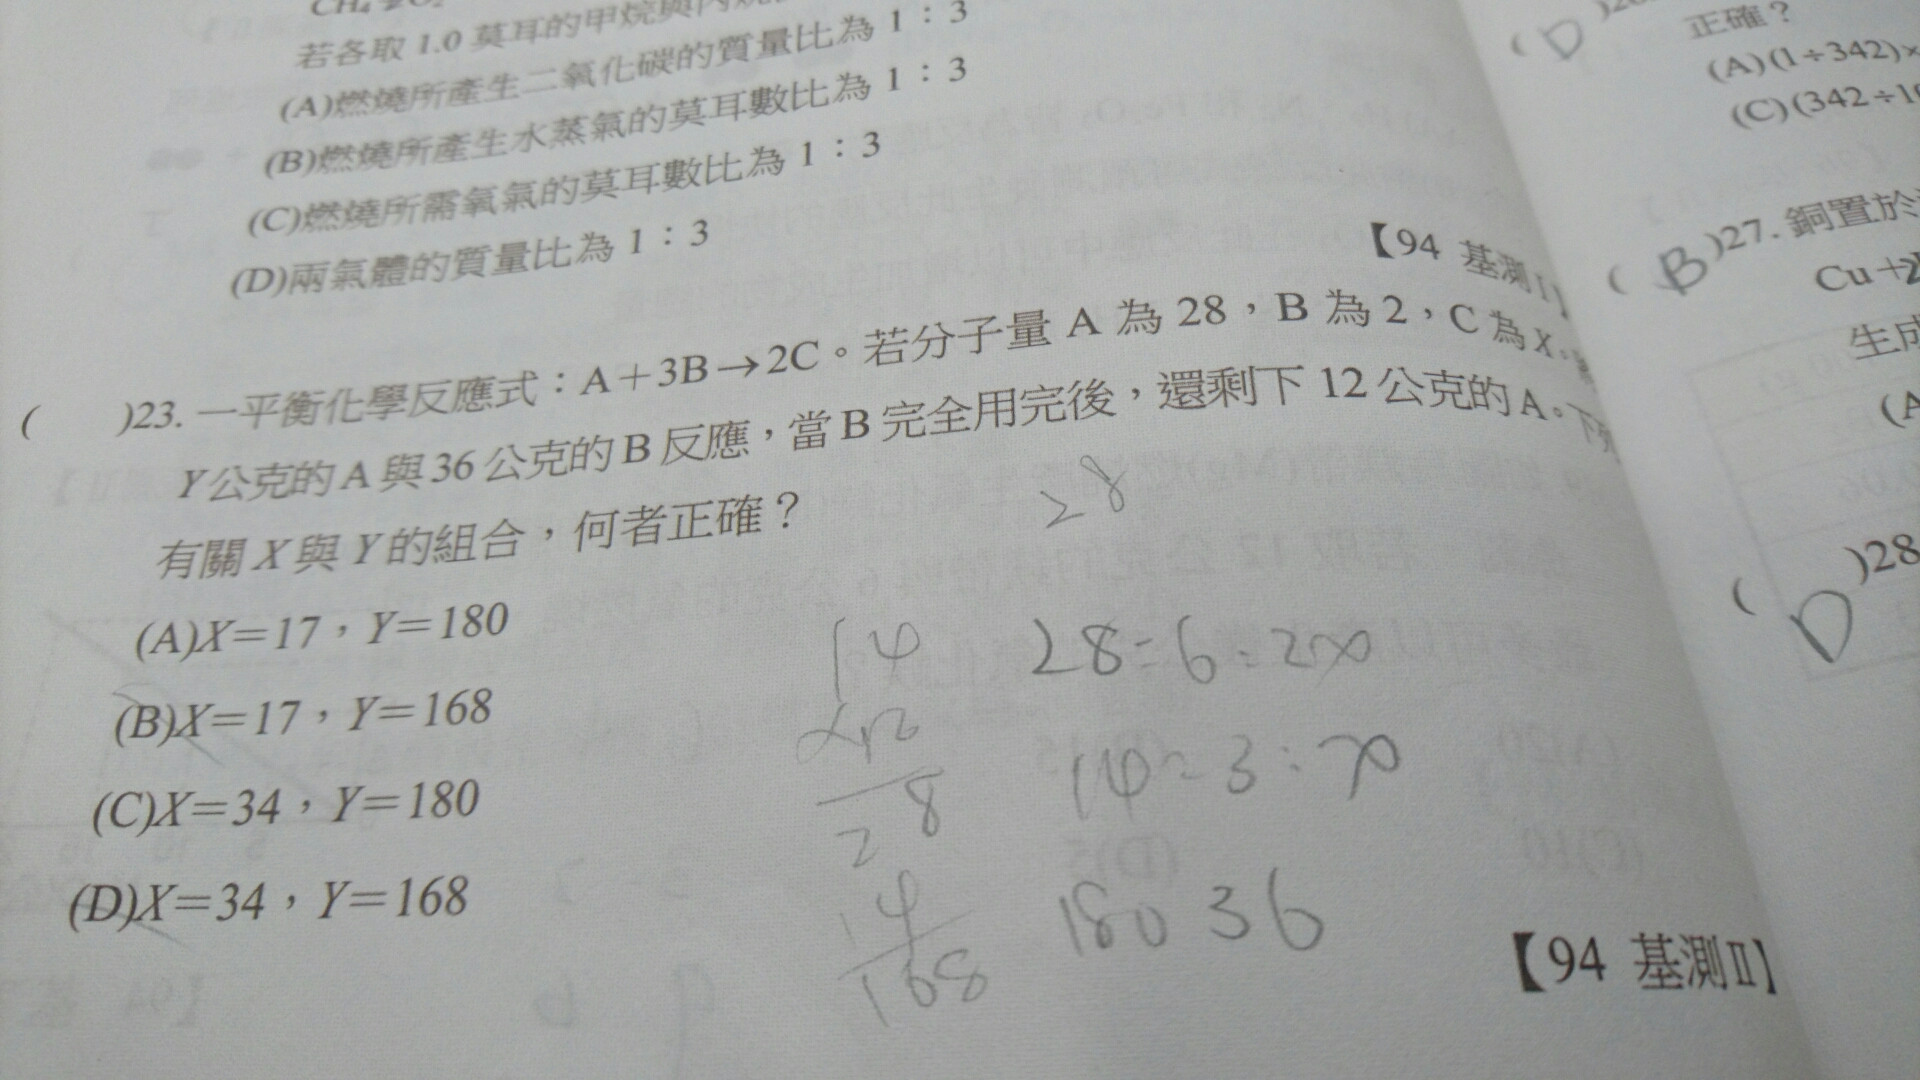 CH₄
若各取 1.0 莫耳的甲烷與丙烷
(A)燃燒所產生二氧化碳的質量比為 1：3
(B)燃燒所產生水蒸氣的莫耳數比為 1：3
(C)燃燒所需氧氣的莫耳數比為 1：3
(D)兩氣體的質量比為 1：3
【94 基測I】
( )23. 一平衡化學反應式：A＋3B→2C。若分子量 A 為 28，B 為 2，C 為 X，
Y公克的 A 與 36 公克的 B 反應，當 B 完全用完後，還剩下 12 公克的 A。下列
有關 X 與 Y 的組合，何者正確？
(A)X＝17，Y＝180
(B)X＝17，Y＝168
(C)X＝34，Y＝180
(D)X＝34，Y＝168
【94 基測II】
28
14
×12
28
14
168
28=6=2x
14=3:x
180 36
( D )
正確？
(A)(1÷342)×
(C)(342÷
( B )27. 銅置於
Cu＋
生成
(A
( D )28